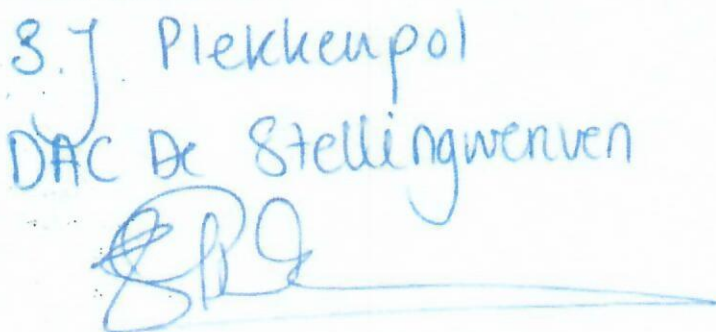 S.J Plekkenpol
DAC De Stellingwerven